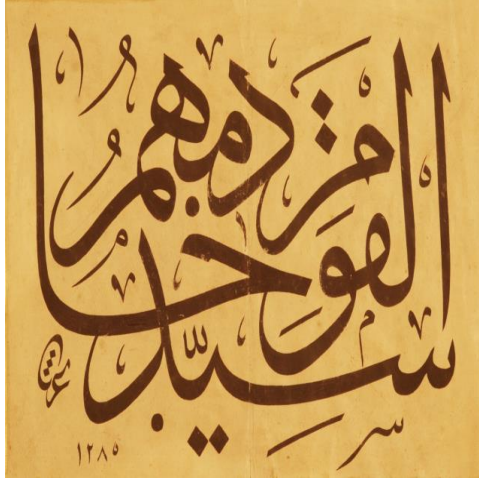 سيد القوم خادمهم
١٢٨٥